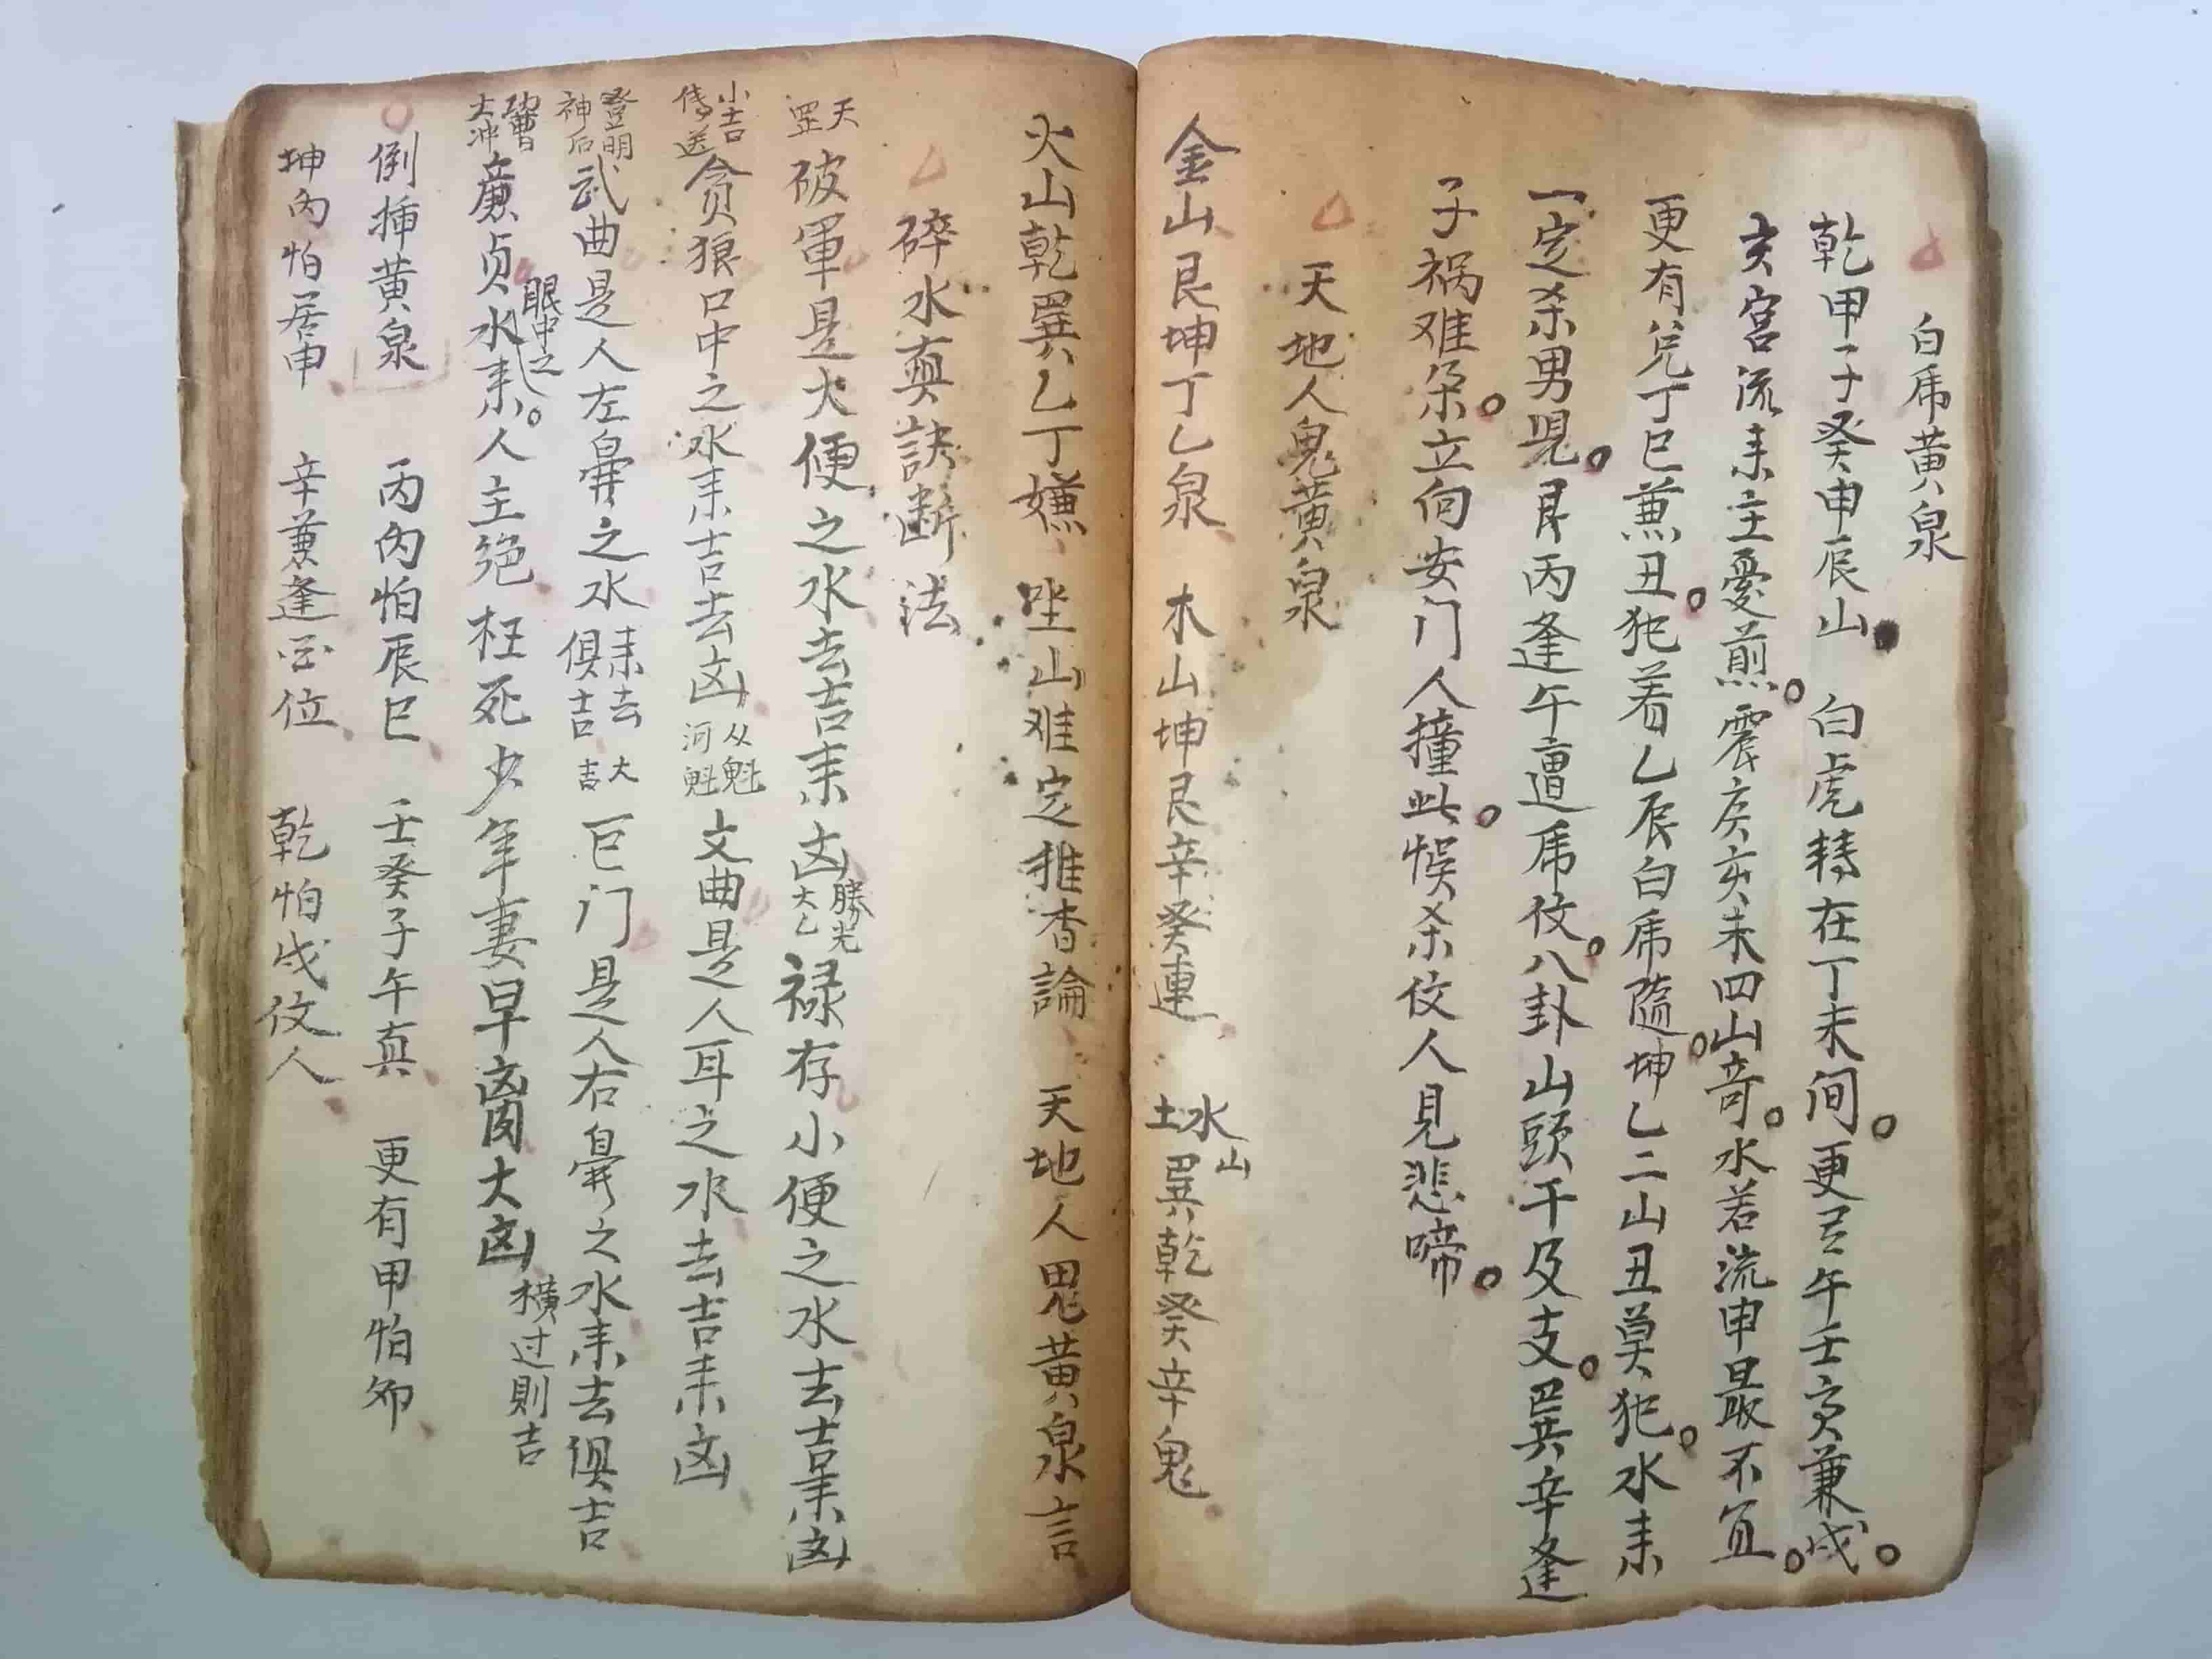 白虎黄泉
乾甲子癸申辰山 白虎转在丁未间 更有午壬寅兼戌
亥宫流来主憂煎 震庚亥未四山奇 水若流申最不宜
更有兑丁巳兼丑 犯着乙辰白虎随 坤乙二山丑莫犯 水来
一定杀男児 艮丙逢午遭虎伩 八卦山頭干及支 巽辛逢
子祸难朵 立向安门人撞此 悮杀伩人見悲啼
天地人鬼黄泉
金山艮坤丁乙泉 木山坤艮辛癸連 水土山巽乾癸辛鬼
火山乾巽乙丁嫌 坐山难定推杳論 天地人鬼黄泉言
碎水真訣断法
天罡 破軍是大便之水去吉来凶 勝光太乙 禄存小便之水去吉来凶
小吉傳送 贪狼口中之水来吉去凶 从魁河魁 文曲是人耳之水去吉来凶
登明神后 武曲是人左鼻之水来去俱吉 大吉 巨门是人右鼻之水来去俱吉
功曹大冲 廉贞眼中之水来人主绝枉死少年妻早啇大凶 横过則吉
倒插黄泉 丙內怕辰巳 壬癸子午真 更有甲怕夘
坤內怕居申 辛兼逢酉位 乾怕戌伩人